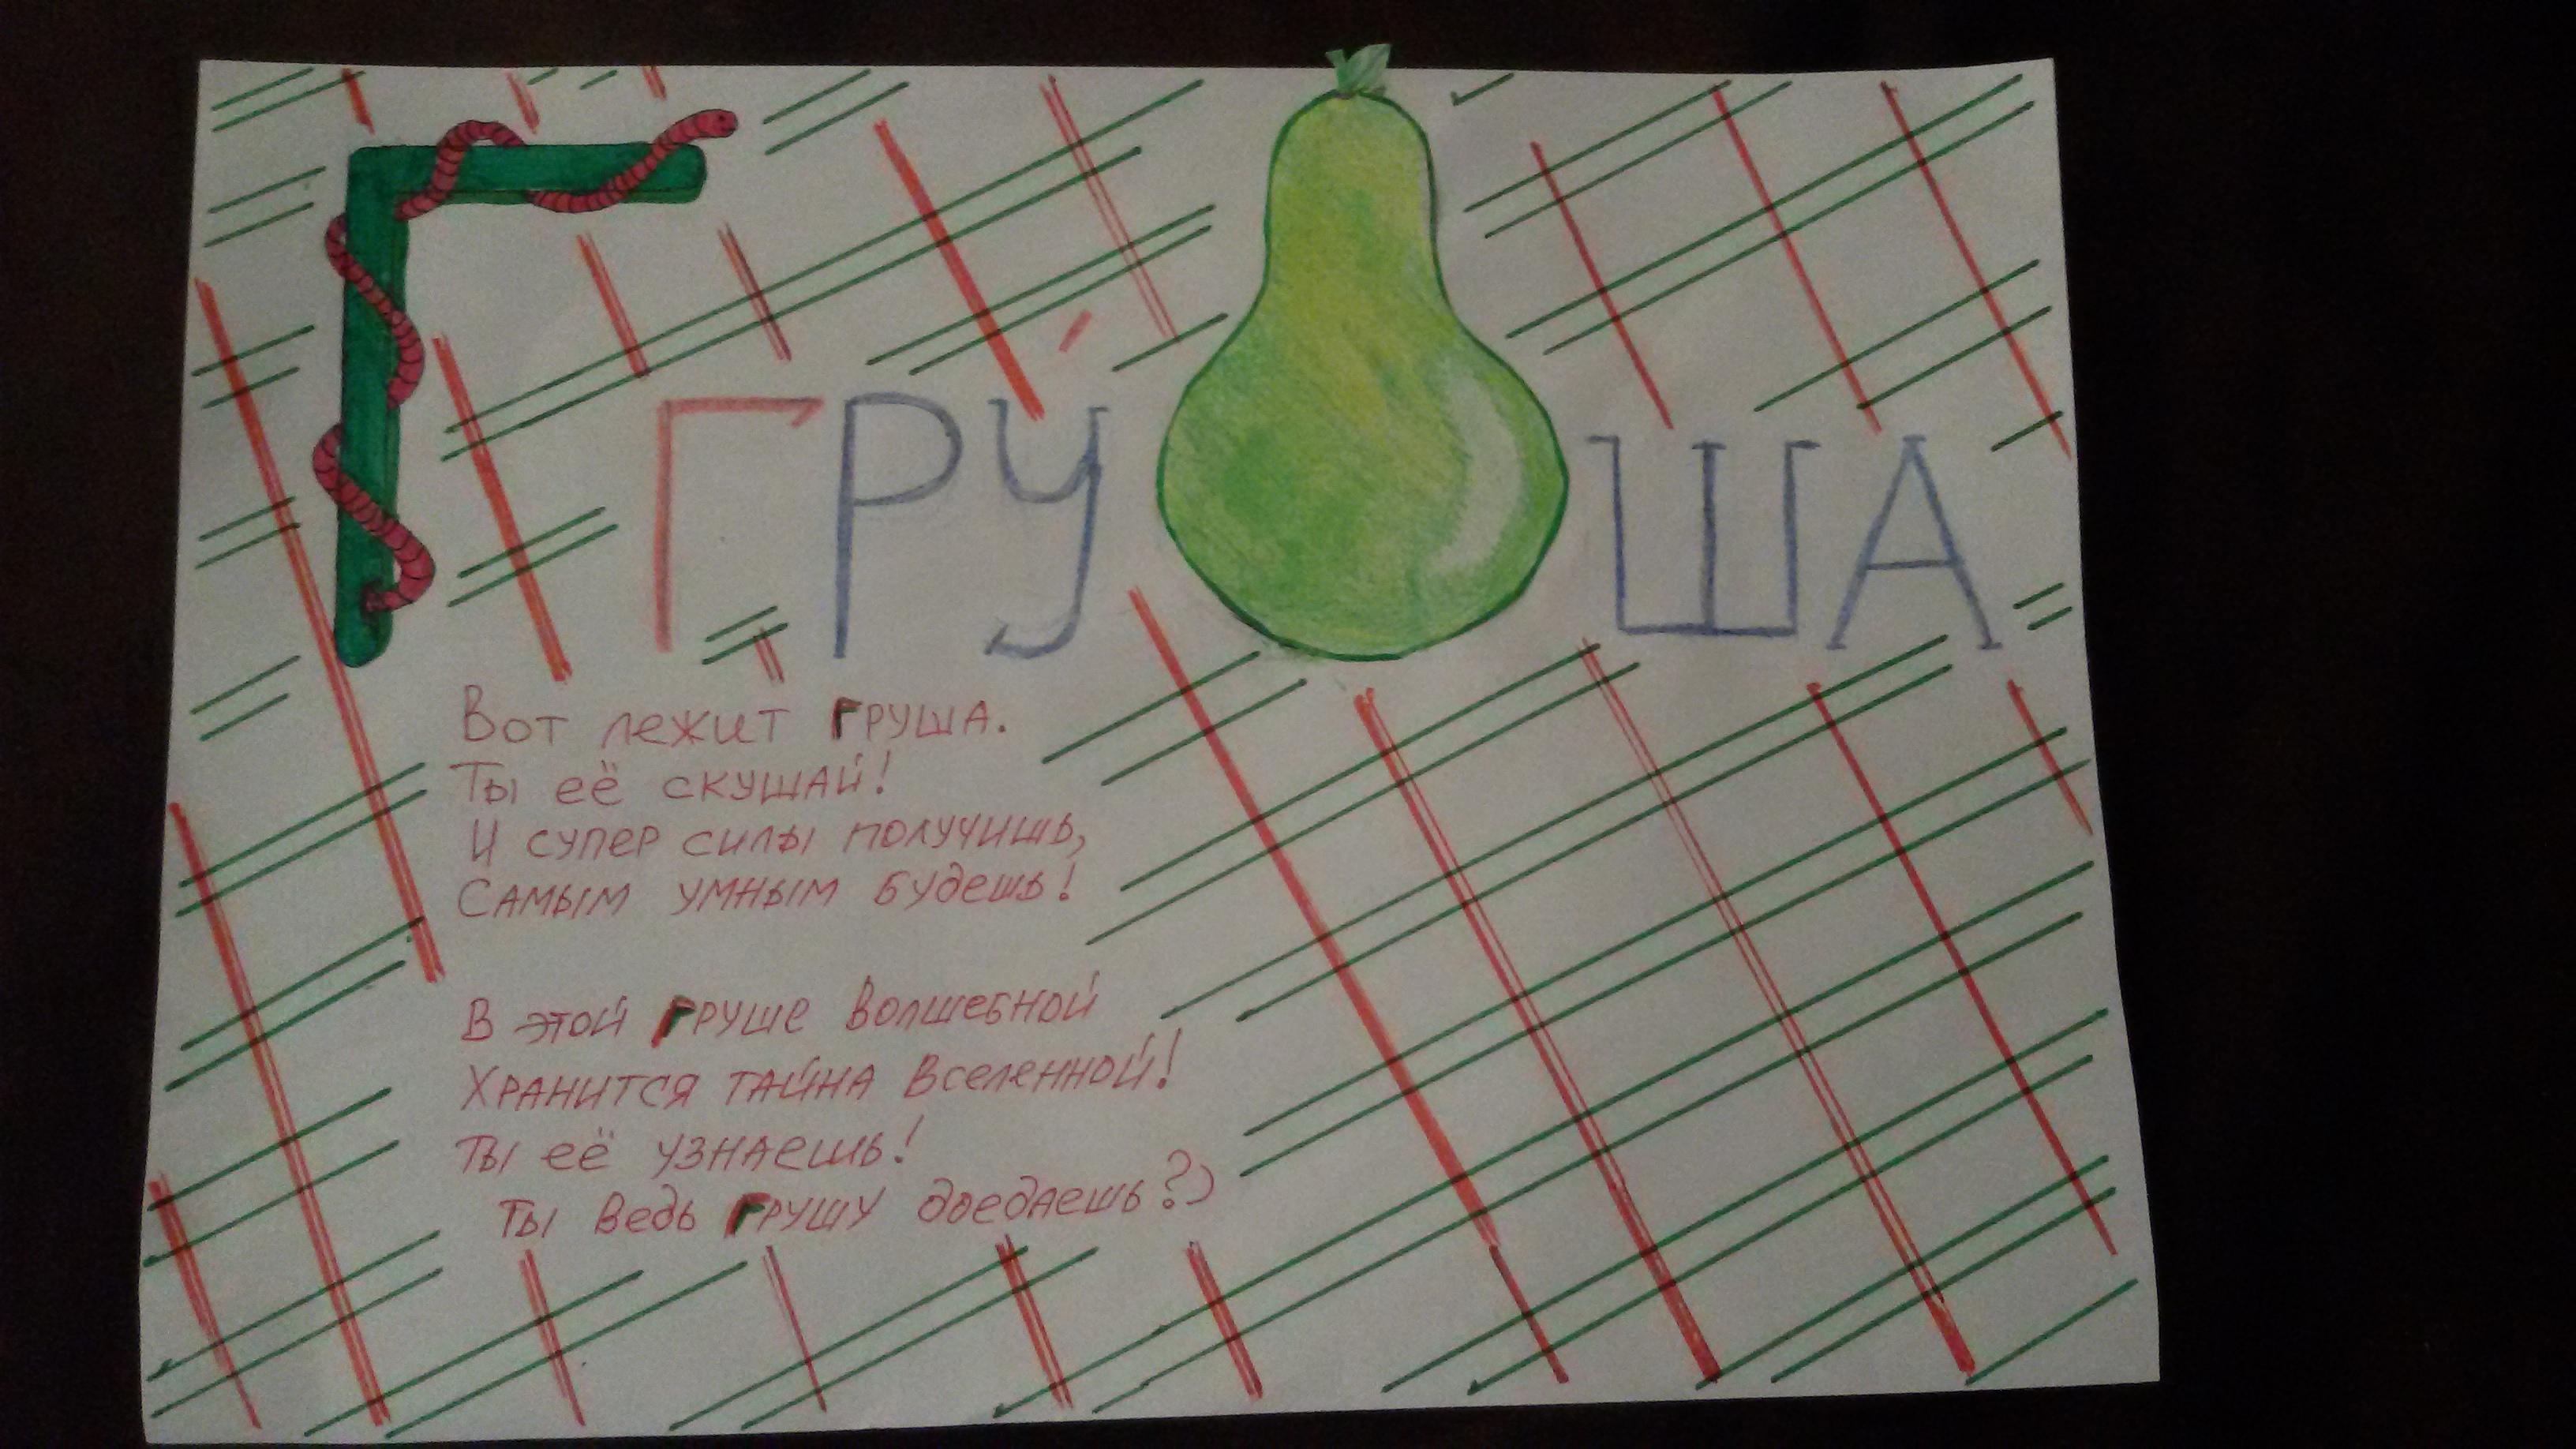 Г
ГРУ́ША
Вот лежит груша.
Ты её скушай!
И супер силы получишь,
Самым умным будешь!
В этой груше волшебной
Хранится тайна Вселенной!
Ты её узнаешь!
Ты ведь грушу доедаешь?)